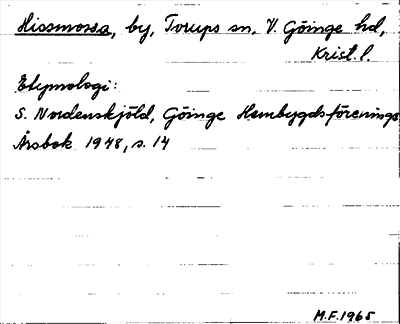 Hissmossa, by, Torups sn, V. Göinge hd,
Krist. l.
Etymologi:
S. Nordenskjöld, Göinge Hembygdsförenings
Årsbok 1948, s. 14
M.F. 1965